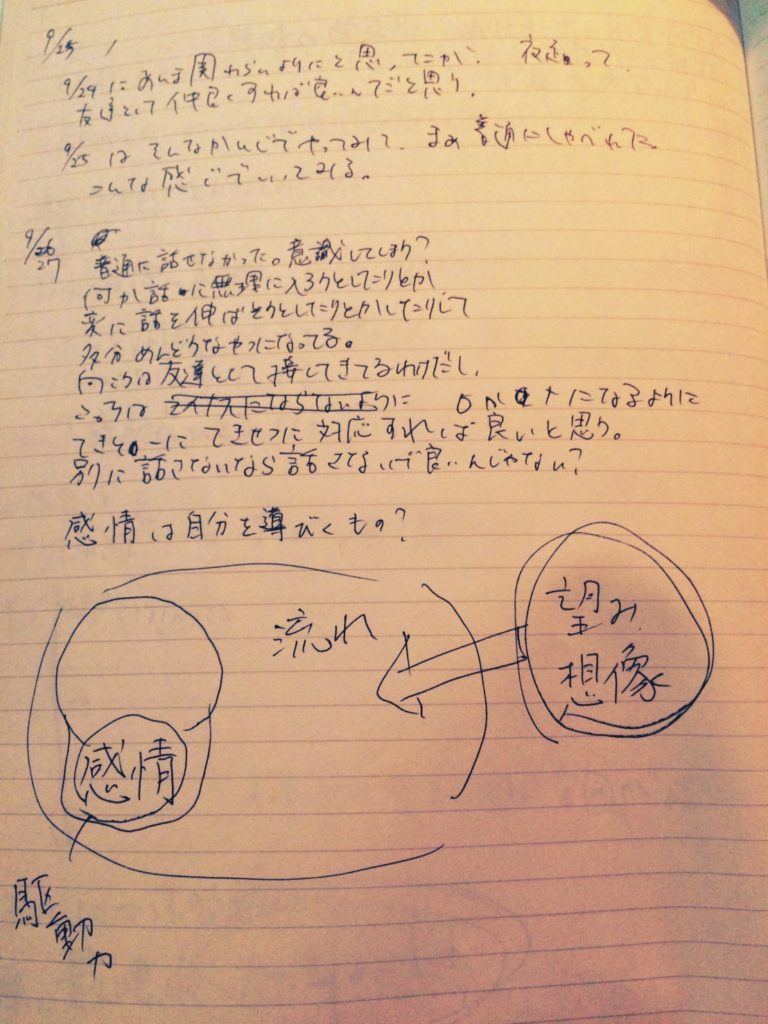 9/25
9/24 にあんま関わらないようにと思ってたが、夜走って
友達として仲良くすれば良いんだと思う。
9/25 はそんなかんじでやってみて、まあ普通にしゃべれた。
こんな感じでいってみる。
9/26
27
普通に話せなかった。意識してしまう?
何か話に無理に入ろうとしたりとか
変に話を伸ばそうとしたりとかしたりして
多分めんどうなやつになってる。
向こうは友達として接してきてるわけだし、
こっちは マイナスにならないように 0か+になるように
てきとーにてきせつに対応すれば良いと思う。
別に話さないなら話さないで良いんじゃない?
感情は自分を導びくもの?
流れ
望み
想像
感情
駆動力